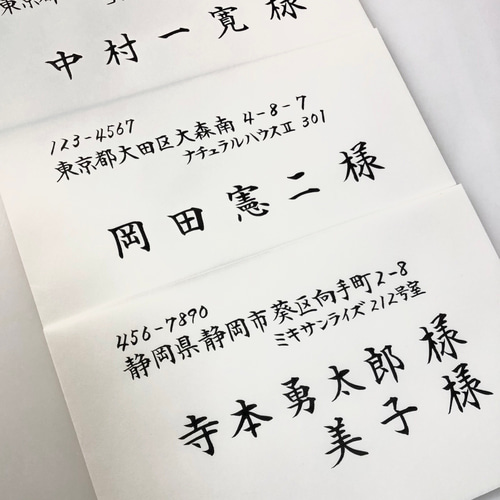 東京都
中村一寛様
123-4567
東京都大田区大森南 4-8-7
ナチュラルハウスⅡ 301
岡田憲二様
456-7890
静岡県静岡市葵区向手町2-8
ミキサンライズ212号室
寺本勇太郎様
美子様